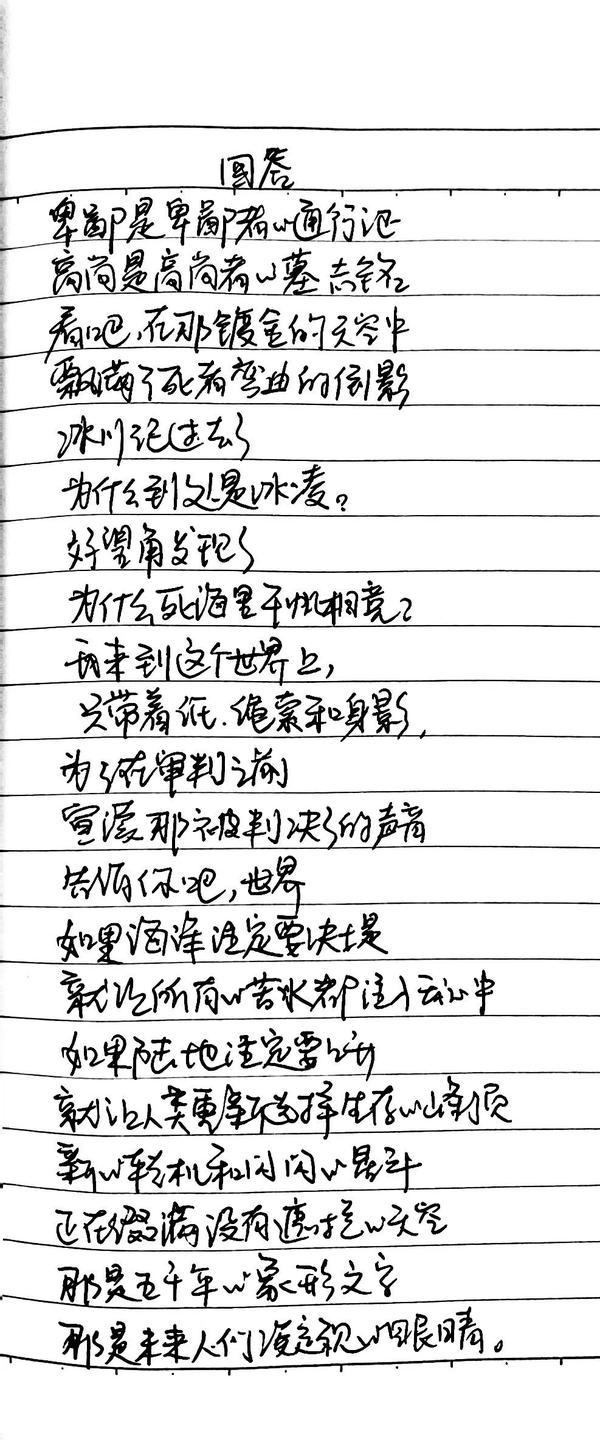 回答
卑鄙是卑鄙者的通行证
高尚是高尚者的墓志铭
看吧,在那镀金的天空中
飘满了死者弯曲的倒影
冰川纪过去了
为什么到处是冰凌?
好望角发现了
为什么死海里千帆相竞?
我来到这个世界上,
只带着纸.绳索和身影,
为了在审判之前
宣读那被判决了的声音
告诉你吧,世界
如果海洋注定要决堤
就让所有的苦水都注入我心中
如果陆地注定要上升
就让人类重新选择生存的峰顶
新的转机和闪闪的星斗
正在缀满没有遮拦的天空
那是五千年的象形文字
那是未来人们凝视的眼睛。